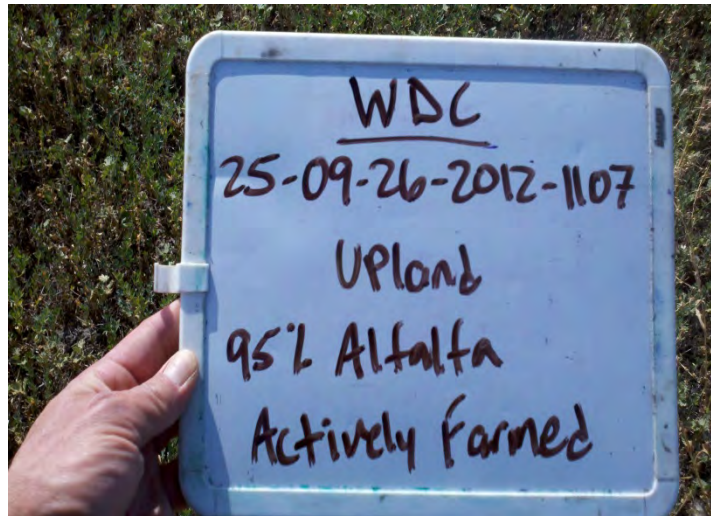 WDC
25-09-26-2012-1107
Upland
95% Alfalfa
Actively Farmed